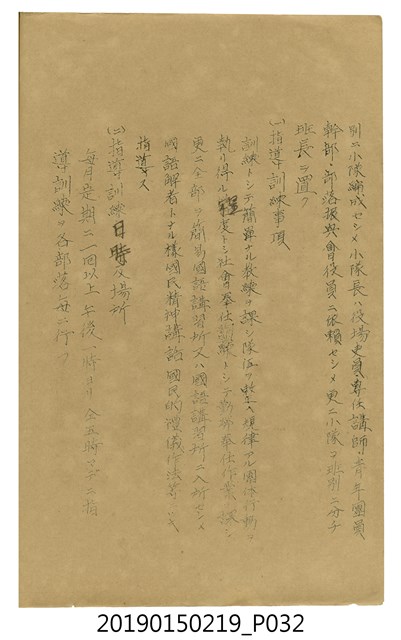 別ニ小隊編成セシメ小隊長ハ役場吏員専任講師青年團員
幹部・部落振興會役員ニ依頼セシメ更ニ小隊ヲ班別ニ分チ
班長ヲ置ク
(一)指導訓練事項
訓練トシテ簡単ナル教練ヲ課シ隊伍ヲ整ヘ規律アル團体行動ヲ
執リ得ル程度トシ社會奉仕訓練トシテ 奉仕作業ヲ課シ
更ニ全部ヲ簡易國語講習所又ハ國語講習所ニ入所セシメ
國語解者トナル様國民精神講話國民的禮儀作法等ニ
指導ス
(二)指導訓練日時及場所
毎月定期ニ一回以上午後一時ヨリ仝五時マデニ指
導訓練ヲ各部落毎ニ行フ
20190150219_P032